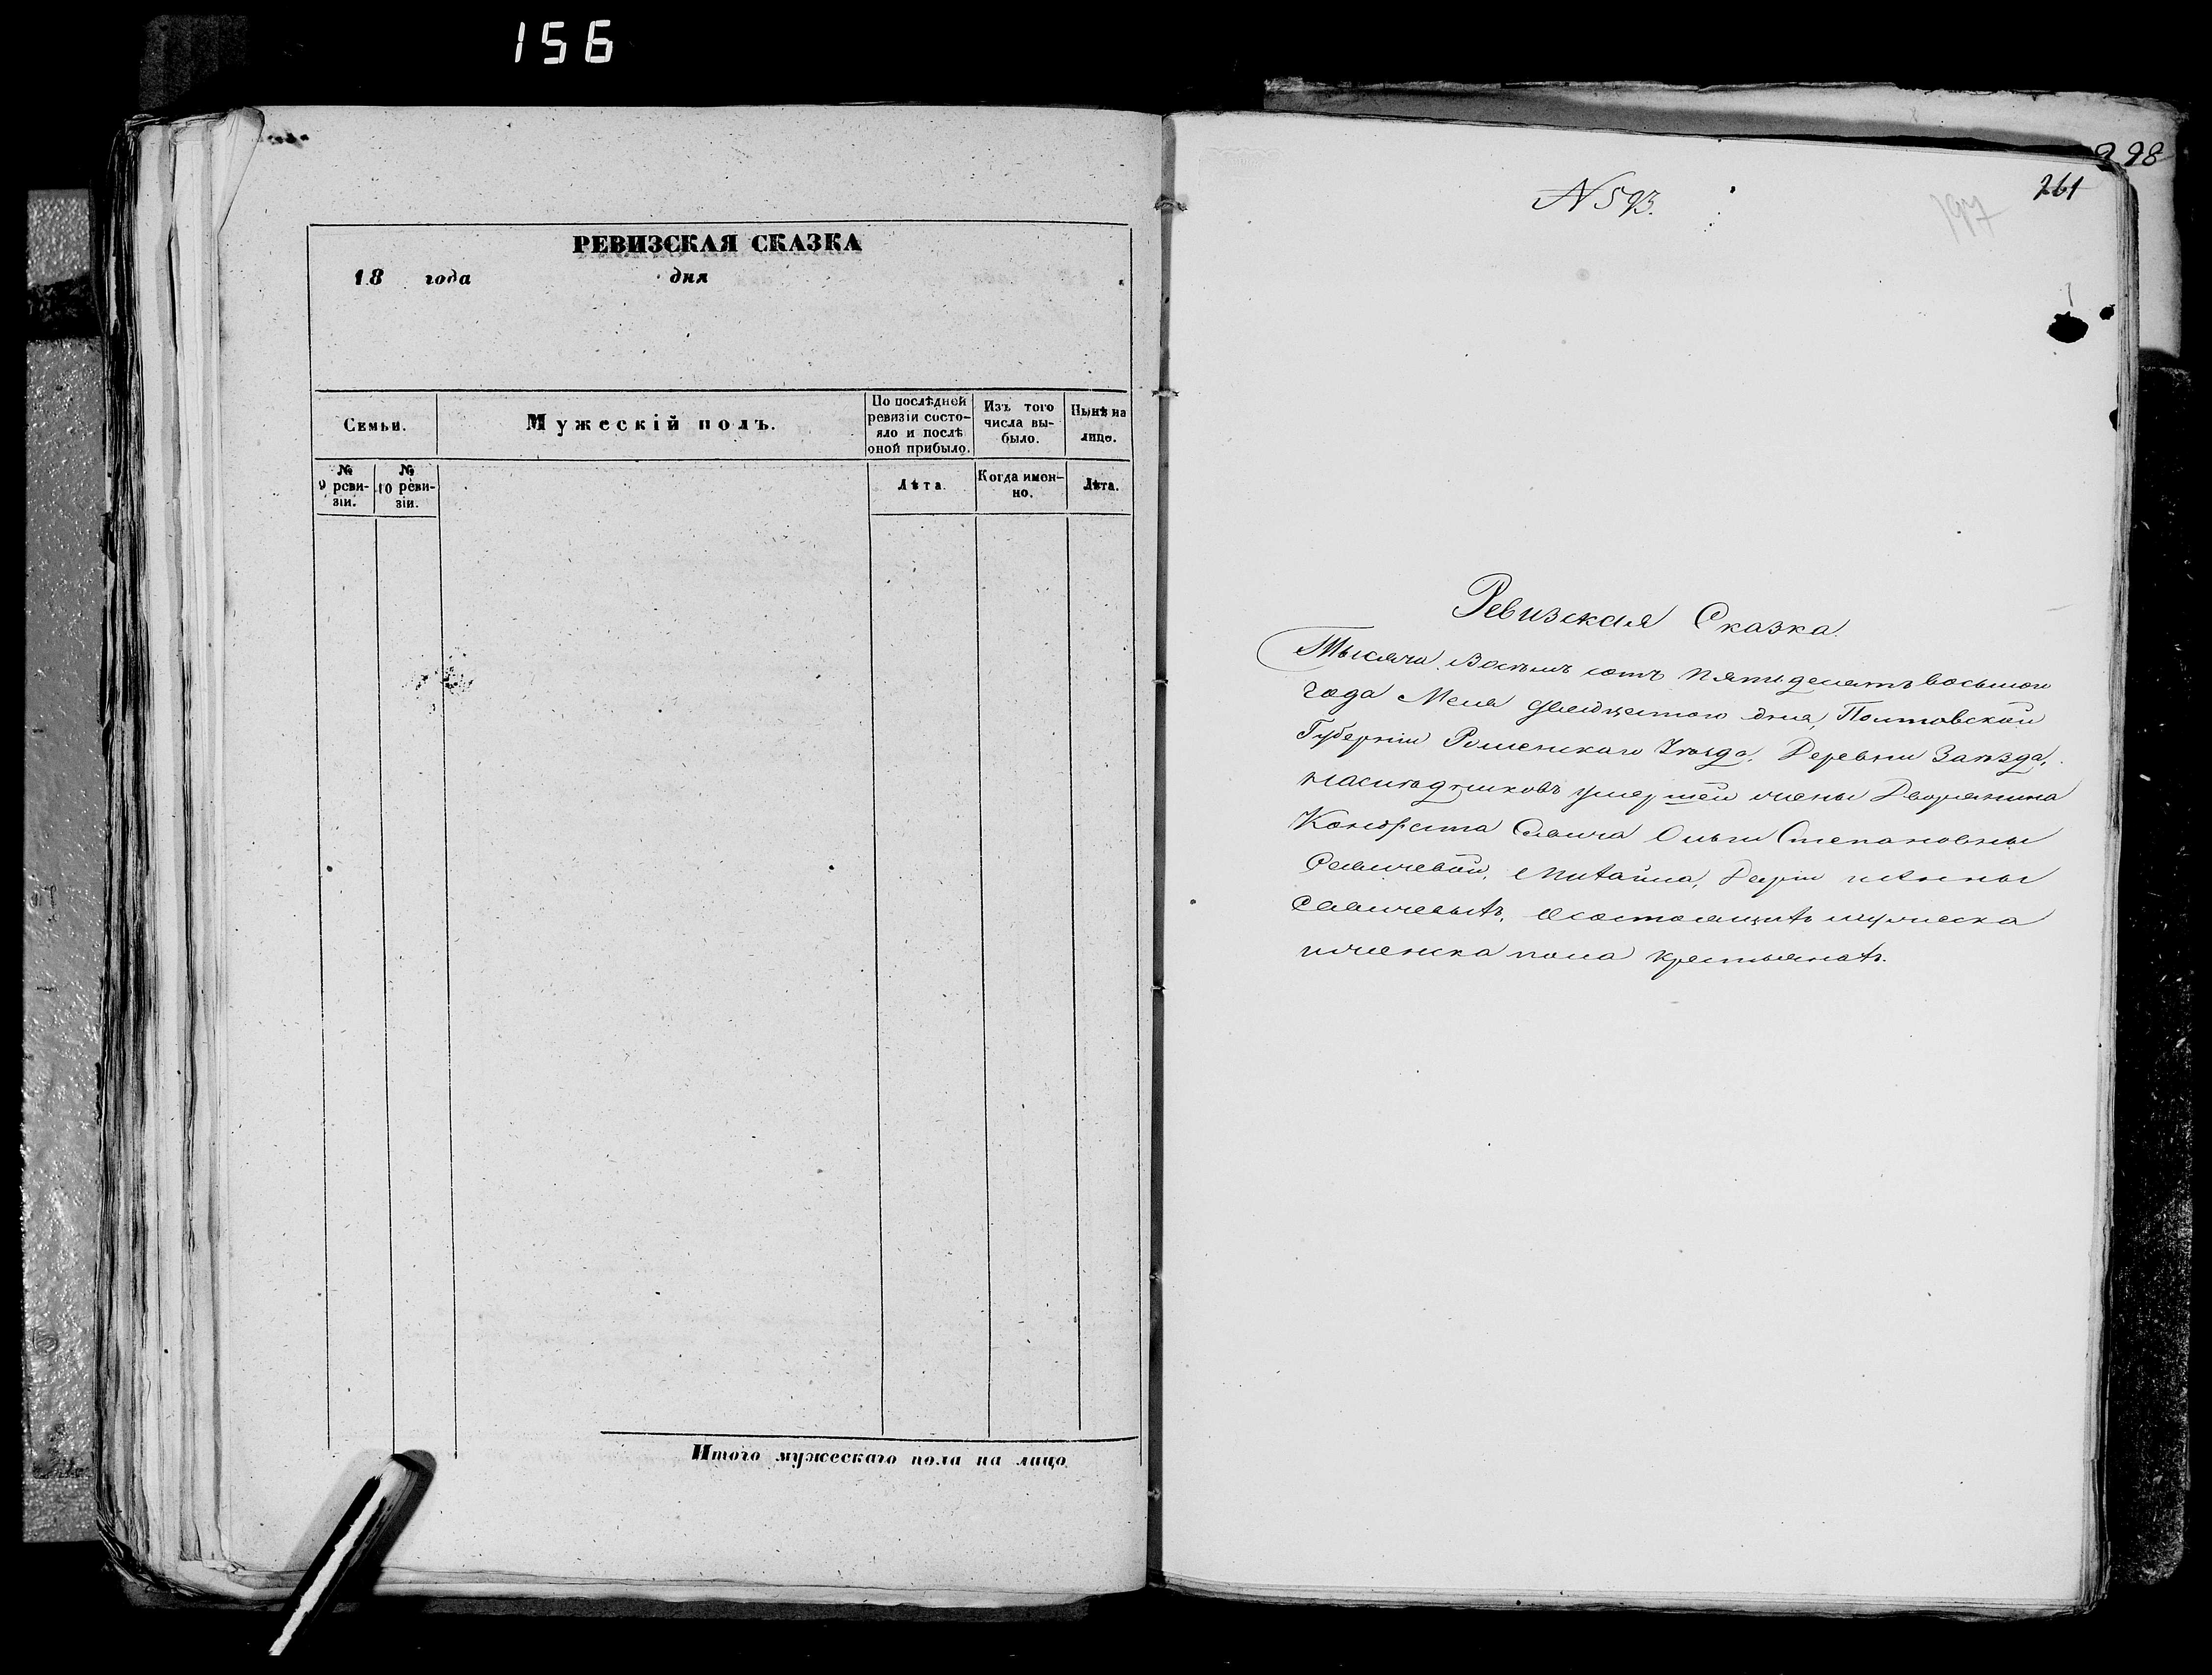 156
РЕВИЗСКАЯ СКАЗКА
18 года дня
Семьи.
Мужескій полъ.
По послѣдней ревизіи состо-яло и послѣ оной прибыло.
Изъ того числа вы-было.
Нынѣ на лицо.
№ 9 реви-зіи.
№ 10 реви-зіи.
Лѣта.
Когда имен-но.
Лѣта.
Итого мужескаго пола на лицо
298
261
197
N 593.
Ревизская Сказка.
Тысяча Восемь сотъ пятидесятъ восьмои
года Мая двадцетого дня, Полтовской
Губерніи Роменскаго Уѣзда, Деревни Заѣзда,
наслѣдниковъ умершей жены Дворянина
Кондрата Савича Ольги Степановны
Савичевой, Михайла, Даріи и Анны
Савичевыхъ, о состоящихъ мужеска
и женска пола крестьянахъ.